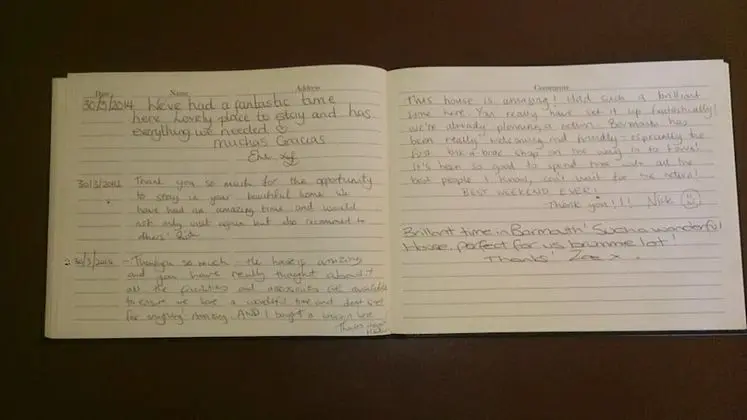 Date Name Address
30/3/2014 We've had a fantastic time
here. Lovely place to stay and has
everything we needed
Muchas Gracias
30/3/2014 Thank you so much for the opportunity
to stay in your beautiful home. We
have had an amazing time and would
not only visit again but also recommend to
others!
30/3/2014 - Thankyou so much - the house is amazing
and you have really thought about it
all the facilities and accessories are available
to ensure we have a wonderful time and dont
for anything! Amazing. AND I bought a here
Thanks again
Comments
This house is amazing! Had such a brilliant
time here. You really have set it up fantastically!
We're already planning a return. Barmouth has
been really welcoming and friendly - especially the
first bric-a-brac shop on the way in to town!
It's been so good to spend time with all the
best people I know, can't wait for the return!
BEST WEEKEND EVER!
Thank you!!! Nick
Brilliant time in Barmouth! Such a wonderful
House, perfect for us brummie lot!
Thanks! Zoe x